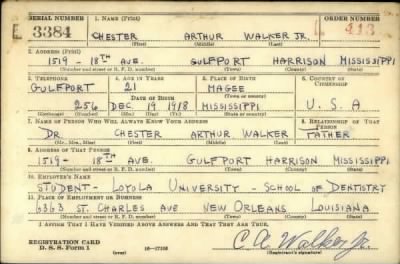 SERIAL NUMBER 1. NAME (Print) ORDER NUMBER
E 3384 CHESTER ARTHUR WALKER JR. 413
(First) (Middle) (Last)
2. ADDRESS (Print)
1519 - 18TH AVE. GULFPORT HARRISON MISSISSIPPI
(Number and street or R. F. D. number) (Town) (County) (State)
3. TELEPHONE 4. AGE IN YEARS 5. PLACE OF BIRTH 6. COUNTRY OF CITIZENSHIP
GULFPORT 21 MAGEE
DATE OF BIRTH
256 DEC 19 1918 MISSISSIPPI U. S. A
(Exchange) (Number) (Mo.) (Day) (Yr.) (State or country)
7. NAME OF PERSON WHO WILL ALWAYS KNOW YOUR ADDRESS 8. RELATIONSHIP OF THAT PERSON
DR CHESTER ARTHUR WALKER FATHER
(Mr., Mrs., Miss) (First) (Middle) (Last)
9. ADDRESS OF THAT PERSON
1519- 18TH AVE. GULFPORT HARRISON MISSISSIPPI
(Number and street or R. F. D. number) (Town) (County) (State)
10. EMPLOYER'S NAME
STUDENT- LOYOLA UNIVERSITY - SCHOOL OF DENTISTRY
11. PLACE OF EMPLOYMENT OR BUSINESS
6363 ST. CHARLES AVE NEW ORLEANS LOUISIANA
(Number and street or R. F. D. number) (Town) (County) (State)
I AFFIRM THAT I HAVE VERIFIED ABOVE ANSWERS AND THAT THEY ARE TRUE.
REGISTRATION CARD
D. S. S. Form 1 C A Walker Jr.
(Registrant's signature)